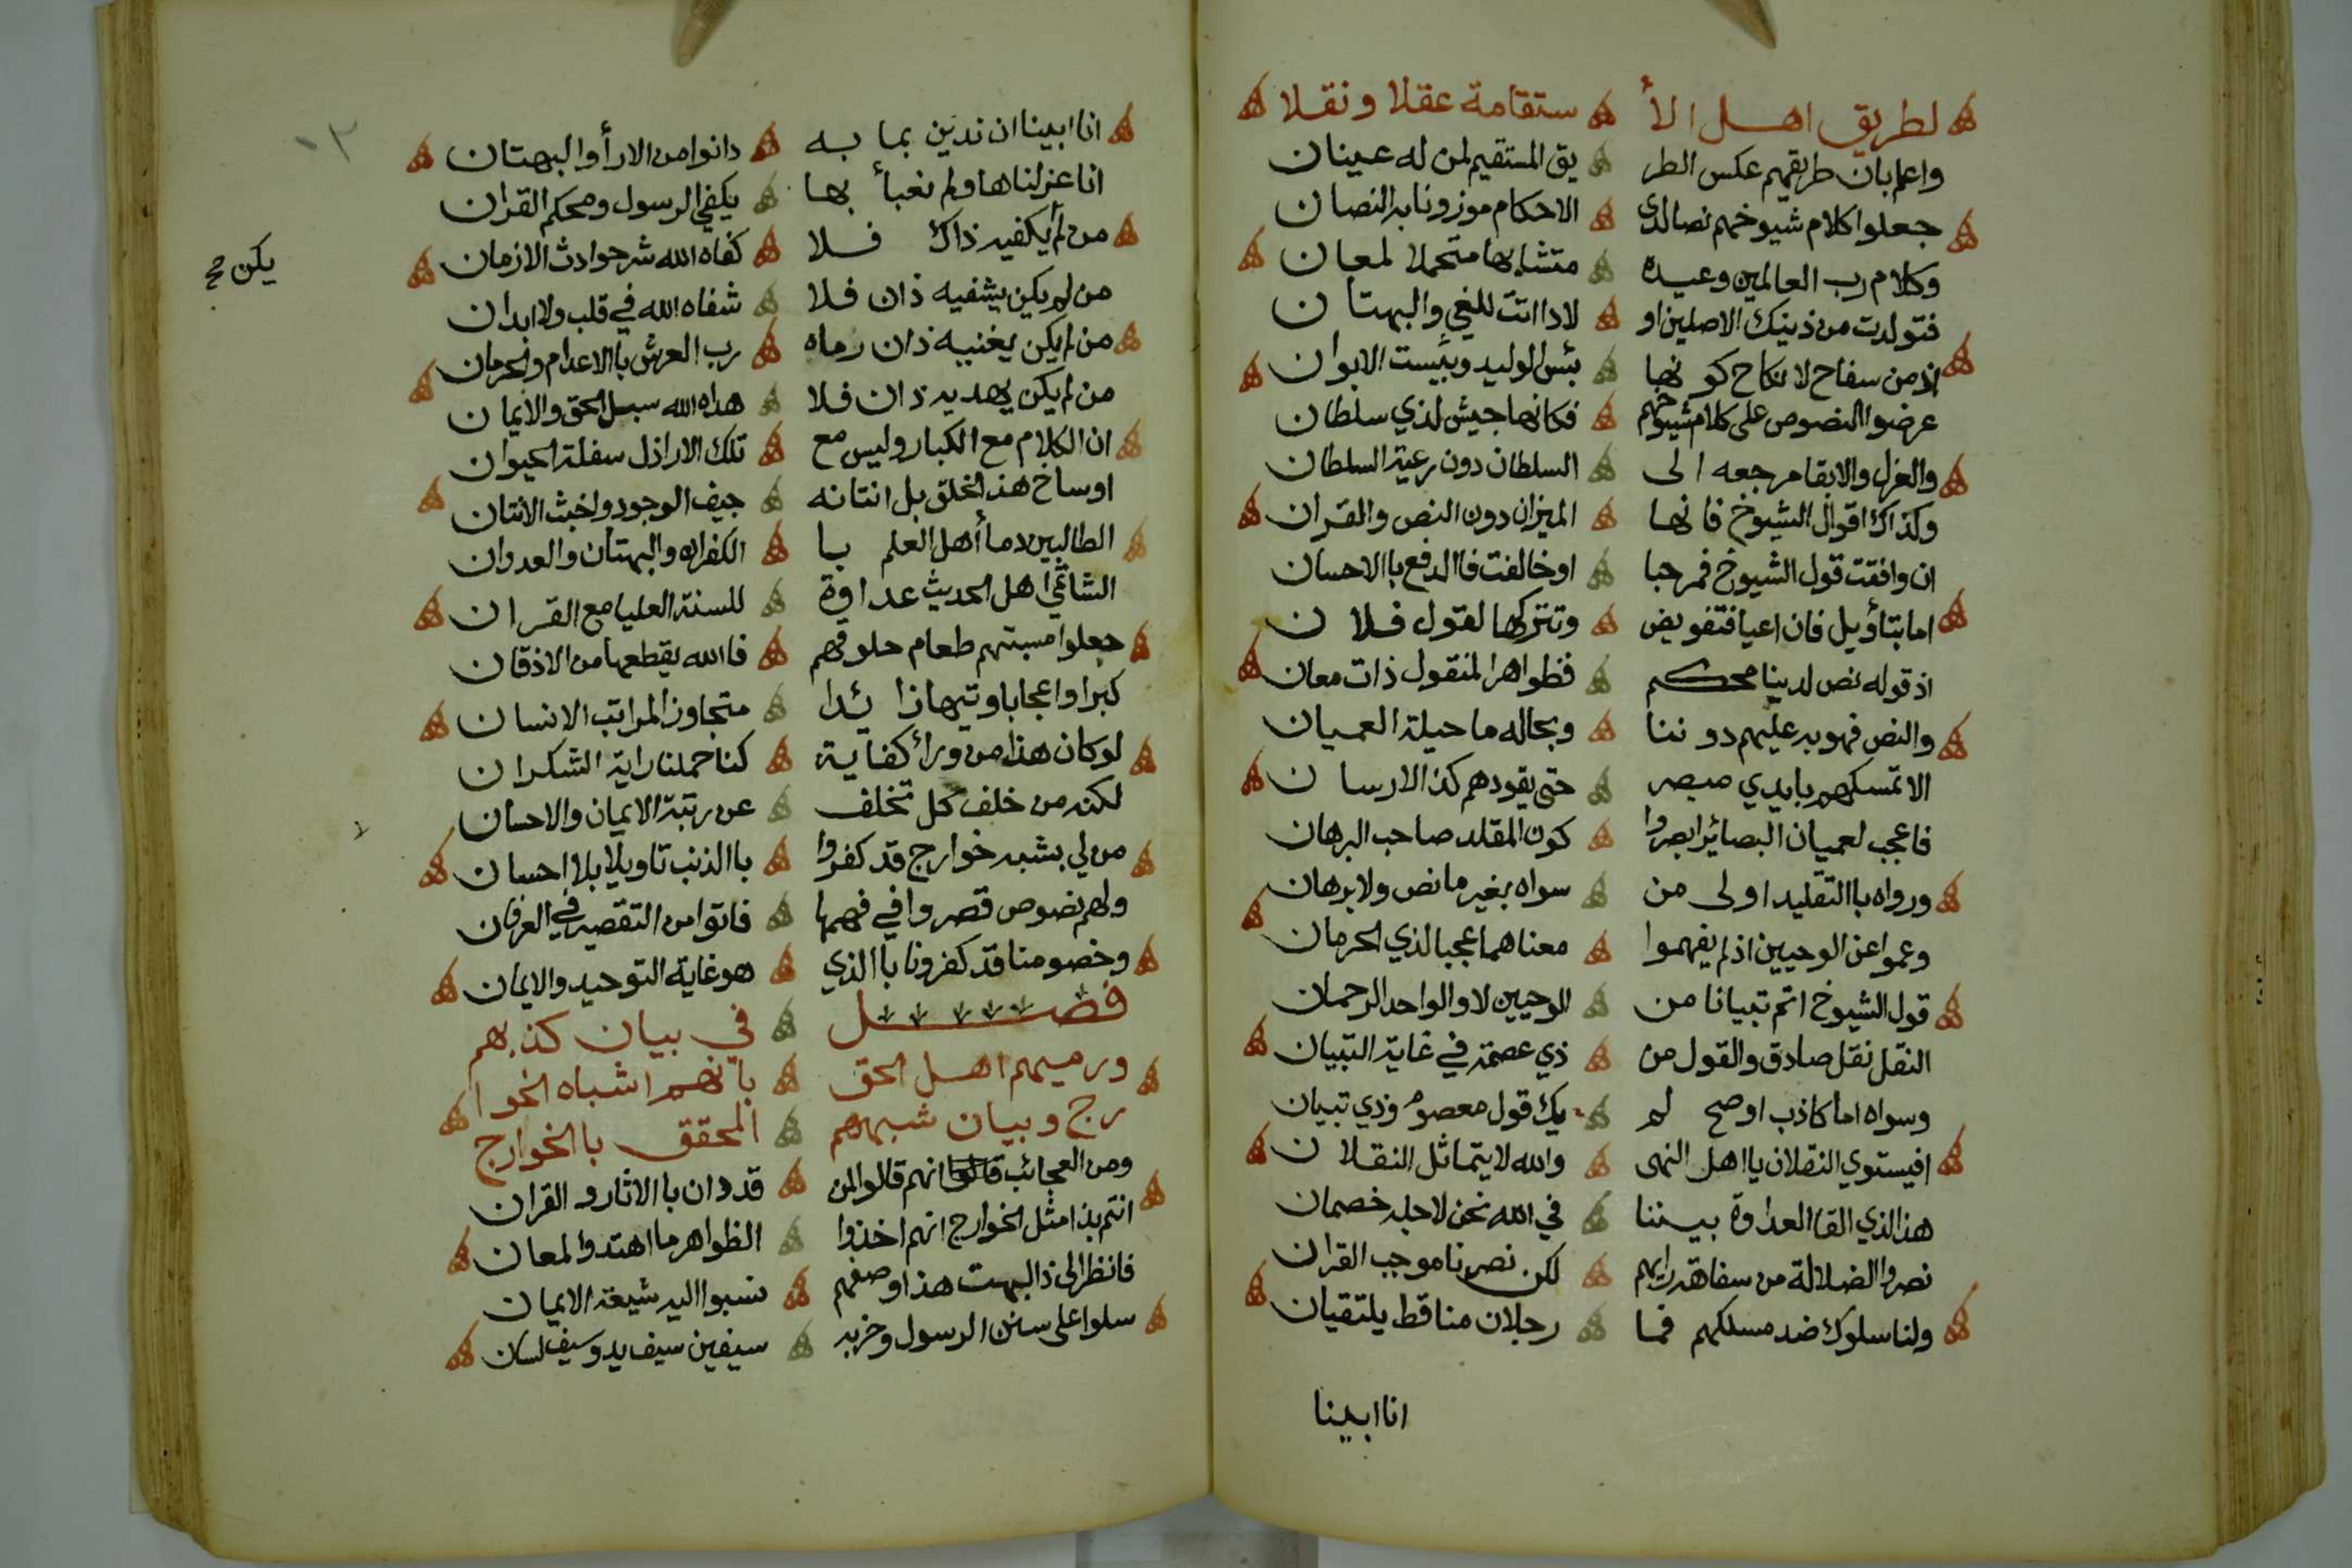 لطريق اهل الأ ستقامة عقلا ونقلا
واعلم بان طريقهم عكس الطر يق المستقيم لمن له عينان
جعلوا كلام شيوخهم نصا لدى الاحكام موزونا به النصان
وكلام رب العالمين وعبده متشابها متحملا لمعان
فتولدت من ذينك الاصلين او لادا اتت للغي والبهتان
اذ من سفاح لا نكاح كونها بئس الوليد وبئست الابوان
عرضوا النصوص على كلام شيوخهم فكانها جيش لذي سلطان
والعزل والابقا مرجعه الى السلطان دون رعية السلطان
وكذاك اقوال الشيوخ فانها الميزان دون النص والقران
ان وافقت قول الشيوخ فمرحبا او خالفت فاالدفع باالاحسان
اما بتأويل فان اعيا فتفويض وتتركها لقول فلان
اذ قوله نص لدينا محكم فظواهر المنقول ذات معان
والنص فهو به عليهم دوننا وبحاله ما حيلة العميان
الا تمسكهم بايدي مبصر حتى يقودهم كذا الارسان
فاعجب لعميان البصائر ابصروا كون المقلد صاحب البرهان
ورواه باالتقليد اولى من سواه بغير ما نص ولا برهان
وعموا عن الوحيين اذ لم يفهموا معناهما عجبا لذي الحرمان
قول الشيوخ اتم تبيانا من الوحيين لا والواحد الرحمان
النقل نقل صادق والقول من ذي عصمة في غاية التبيان
وسواه اما كاذب او صح لم يك قول معصوم وذي تبيان
افيستوي النقلان يااهل النهى والله لا يتماثل النقلان
هذا الذي القا العداوة بيننا في الله نحن لاجله خصمان
نصروا الضلالة من سفاهة رايهم لكن نصرنا موجب القران
ولنا سلوك ضد مسلكهم فما رجلان منا قط يلتقيان
انا ابينا
انا ابينا ان ندين بما به دانوا من الارأ والبهتان
انا عزلناها ولم نعبأ بها يكفي الرسول ومحكم القران
من لم يكفيه ذاك فلا كفاه الله شر حوادث الازمان
يكن صح
من لم يكن يشفيه ذان فلا شفاه الله في قلب ولا ابدان
من لم يكن يغنيه ذان رماه رب العرش باالاعدام والحرمان
من لم يكن يهديه ذان فلا هداه الله سبل الحق والايمان
ان الكلام مع الكبار وليس مع تلك الاراذل سفلة الحيوان
اوساخ هذا الخلق بل انتانه جيف الوجود واخبث الانتان
الطالبين دما أهل العلم با الكفران والبهتان والعدوان
الشاتمي اهل الحديث عداوة للسنة العليا مع القران
جعلوا مسبتهم طعام حلوقهم فاالله يقطعها من الاذقان
كبرا واعجابا وتيها زائدا متجاوز المراتب الانسان
لو كان هذا من ورائ كفاية كنا حملنا راية الشكران
لكنه من خلف كل تخلف عن رتبة الايمان والاحسان
من لي بشبه خوارج قد كفروا باالذنب تاويلا بلا احسان
ولهم نصوص قصروا في فهمها فاتوا من التقصير في العرفان
وخصومنا قد كفرونا باالذي هو غاية التوحيد والايمان
فصل في بيان كذبهم
ورميهم اهل الحق بانهم اشباه الخوا
رج وبيان شبههم المحقق باالخوارج
ومن العجائب انهم قالوا لمن قد دان باالاثار والقران
انتم بذا مثل الخوارج انهم اخذوا الظواهر ما اهتدوا لمعان
فانظر الى ذا البهت هذا وصفهم نسبوا اليه شيعة الايمان
سلوا على سنن الرسول وحزبه سيفين سيف يد وسيف لسان